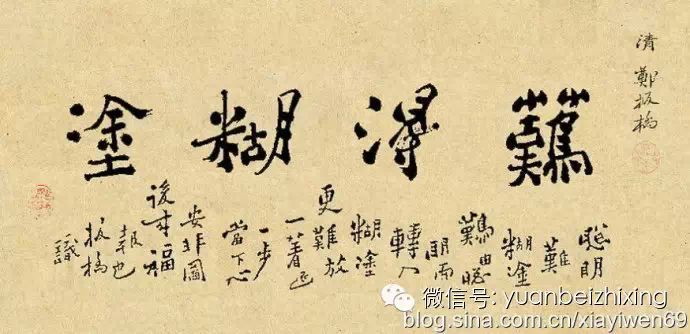 清 鄭板橋
難得糊塗
聰明
難
糊塗
難由聰
明而
轉入
糊塗
更難放
一著退
一步
當下心
安非圖
後來福
報也
板橋
識
微信号: yuanbeizhixing
blog.sina.com.cn/xiayiwen69